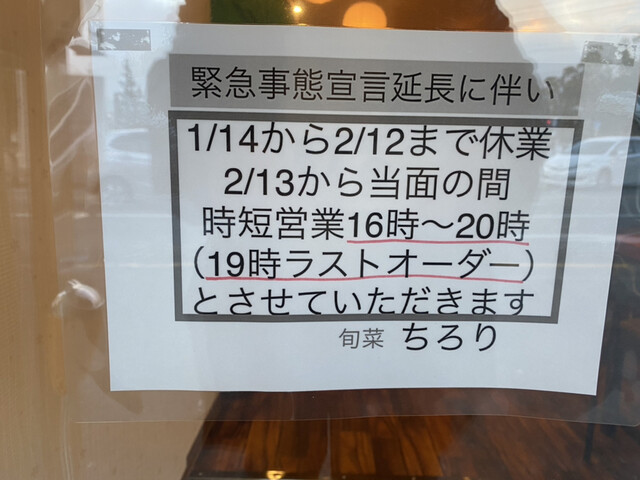 緊急事態宣言延長に伴い
1/14から2/12まで休業
2/13から当面の間
時短営業16時〜20時
（19時ラストオーダー）
とさせていただきます
旬菜 ちろり